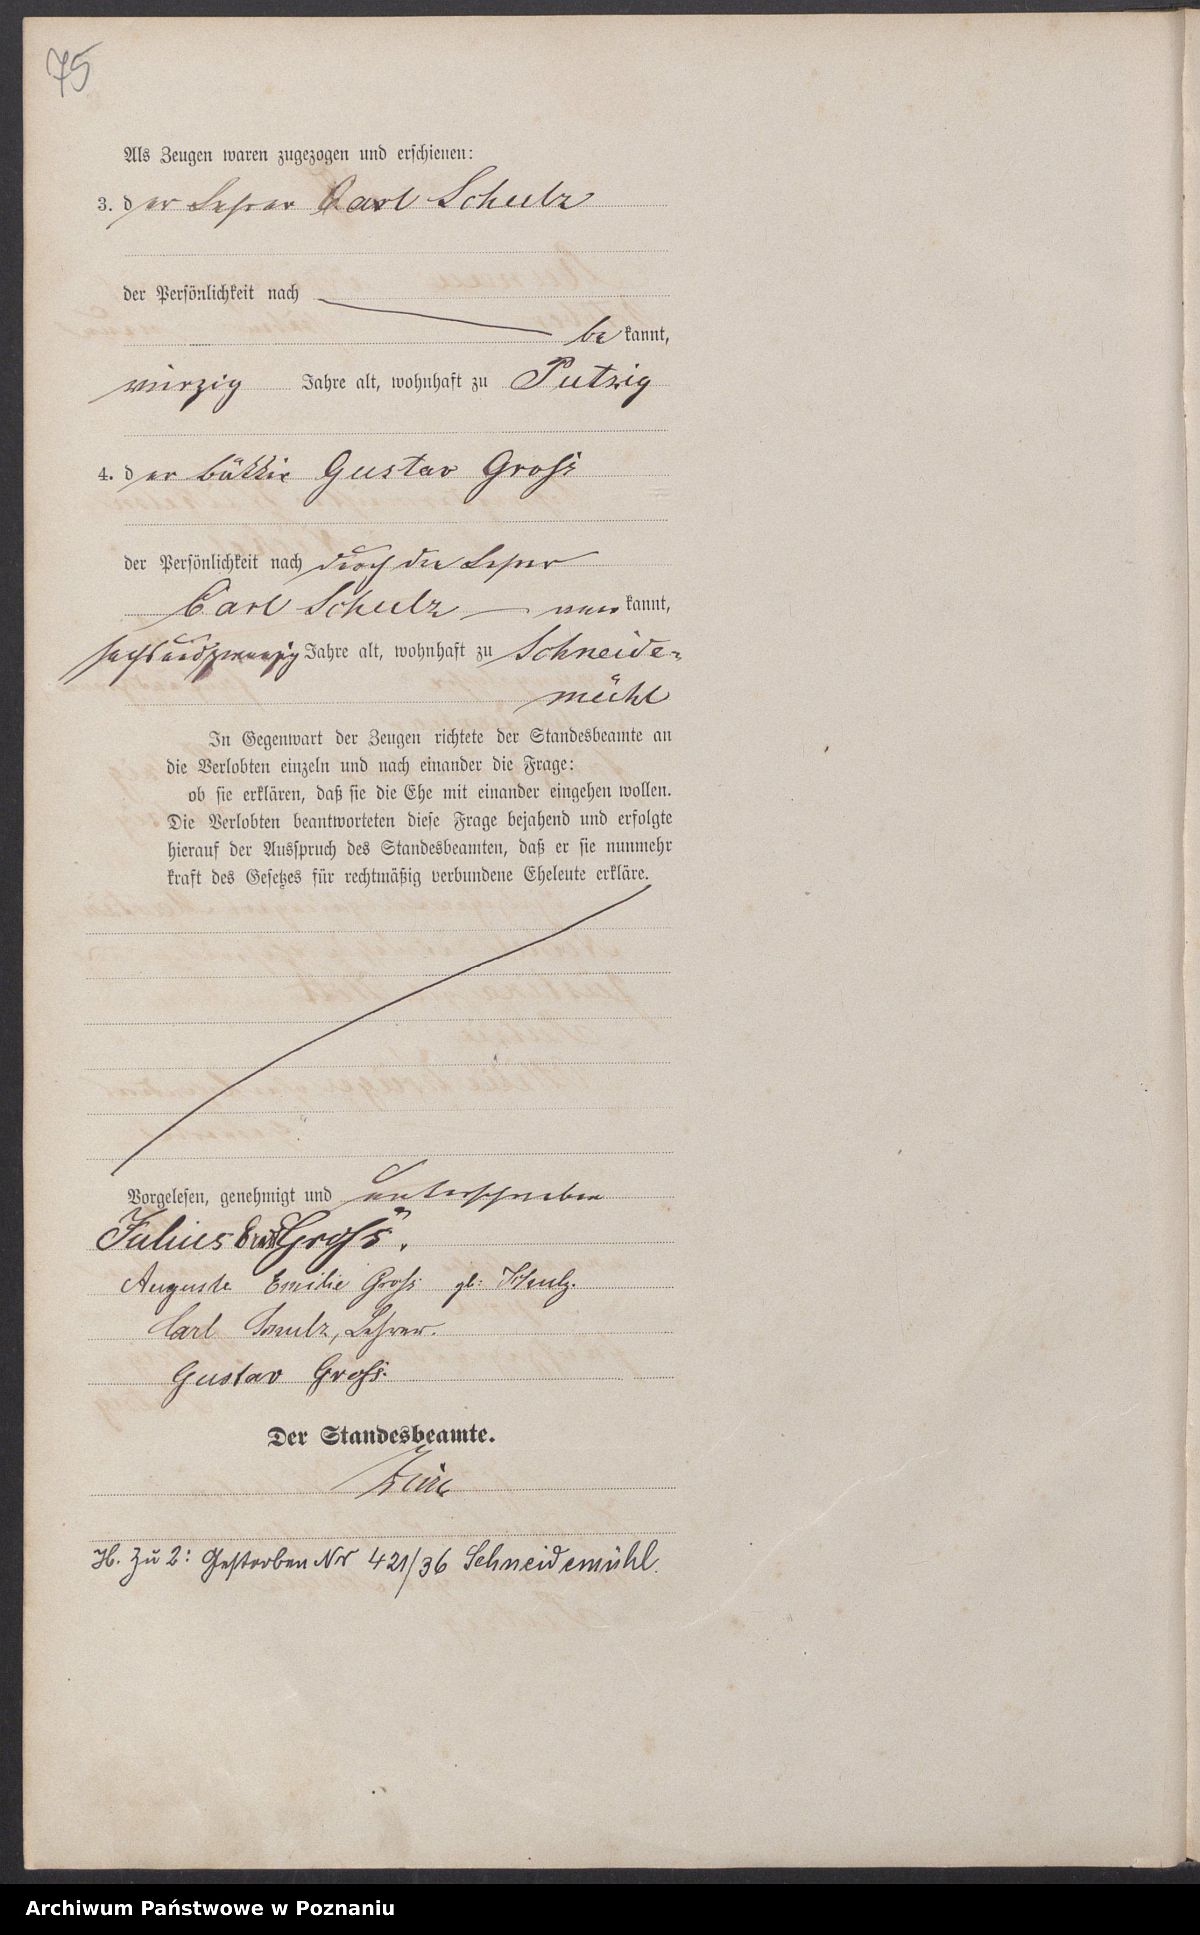 75
Als Zeugen waren zugezogen und erschienen:
3. der Lehrer Carl Schulz
der Persönlichkeit nach
be kannt,
vierzig Jahre alt, wohnhaft zu Putzig
4. der Gustav Groß
der Persönlichkeit nach durch den Lehrer
Carl Schulz — aner kannt,
sechsundzwanzig Jahre alt, wohnhaft zu Schneide-
mühl
In Gegenwart der Zeugen richtete der Standesbeamte an
die Verlobten einzeln und nach einander die Frage:
ob sie erklären, daß sie die Ehe mit einander eingehen wollen.
Die Verlobten beantworteten diese Frage bejahend und erfolgte
hierauf der Ausspruch des Standesbeamten, daß er sie nunmehr
kraft des Gesetzes für rechtmäßig verbundene Eheleute erkläre.
Vorgelesen, genehmigt und unterschrieben
Julius Groß.
Auguste Emilie Groß gb: Schulz.
Carl Schulz, Lehrer.
Gustav Groß.
Der Standesbeamte.
H. Zu 2: Gestorben Nr 421/36 Schneidemühl.
Archiwum Państwowe w Poznaniu